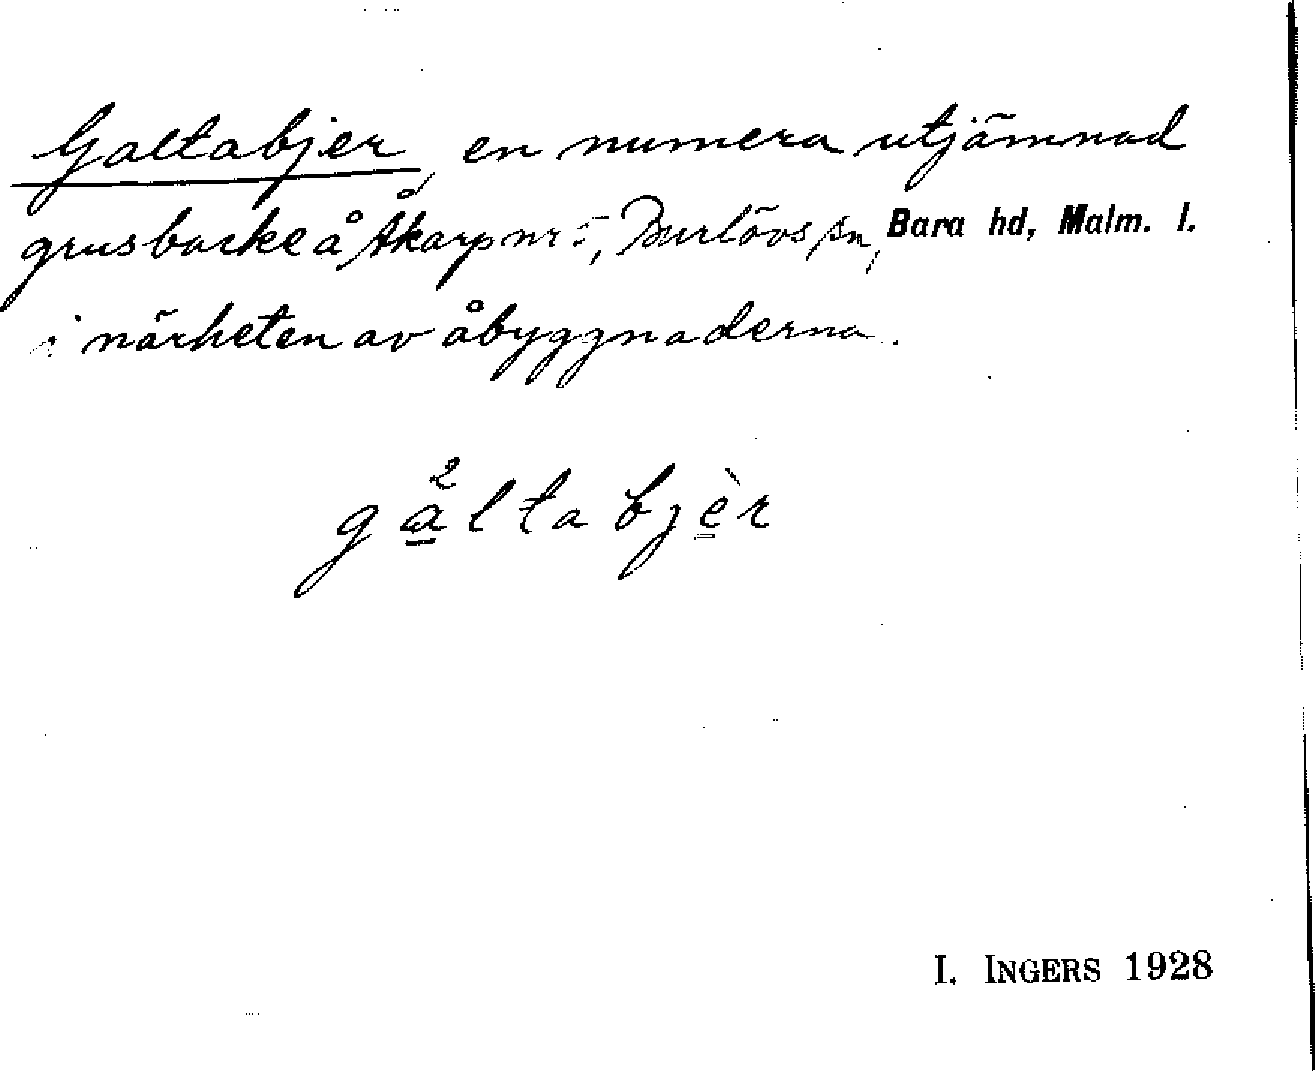 Galtabjer, en numera utjämnad
grusbacke å Åkarp nr 5, Burlövs sn, Bara hd, Malm. l.
i närheten av åbyggnaderna.
ga²lta bjèr
I. INGERS 1928